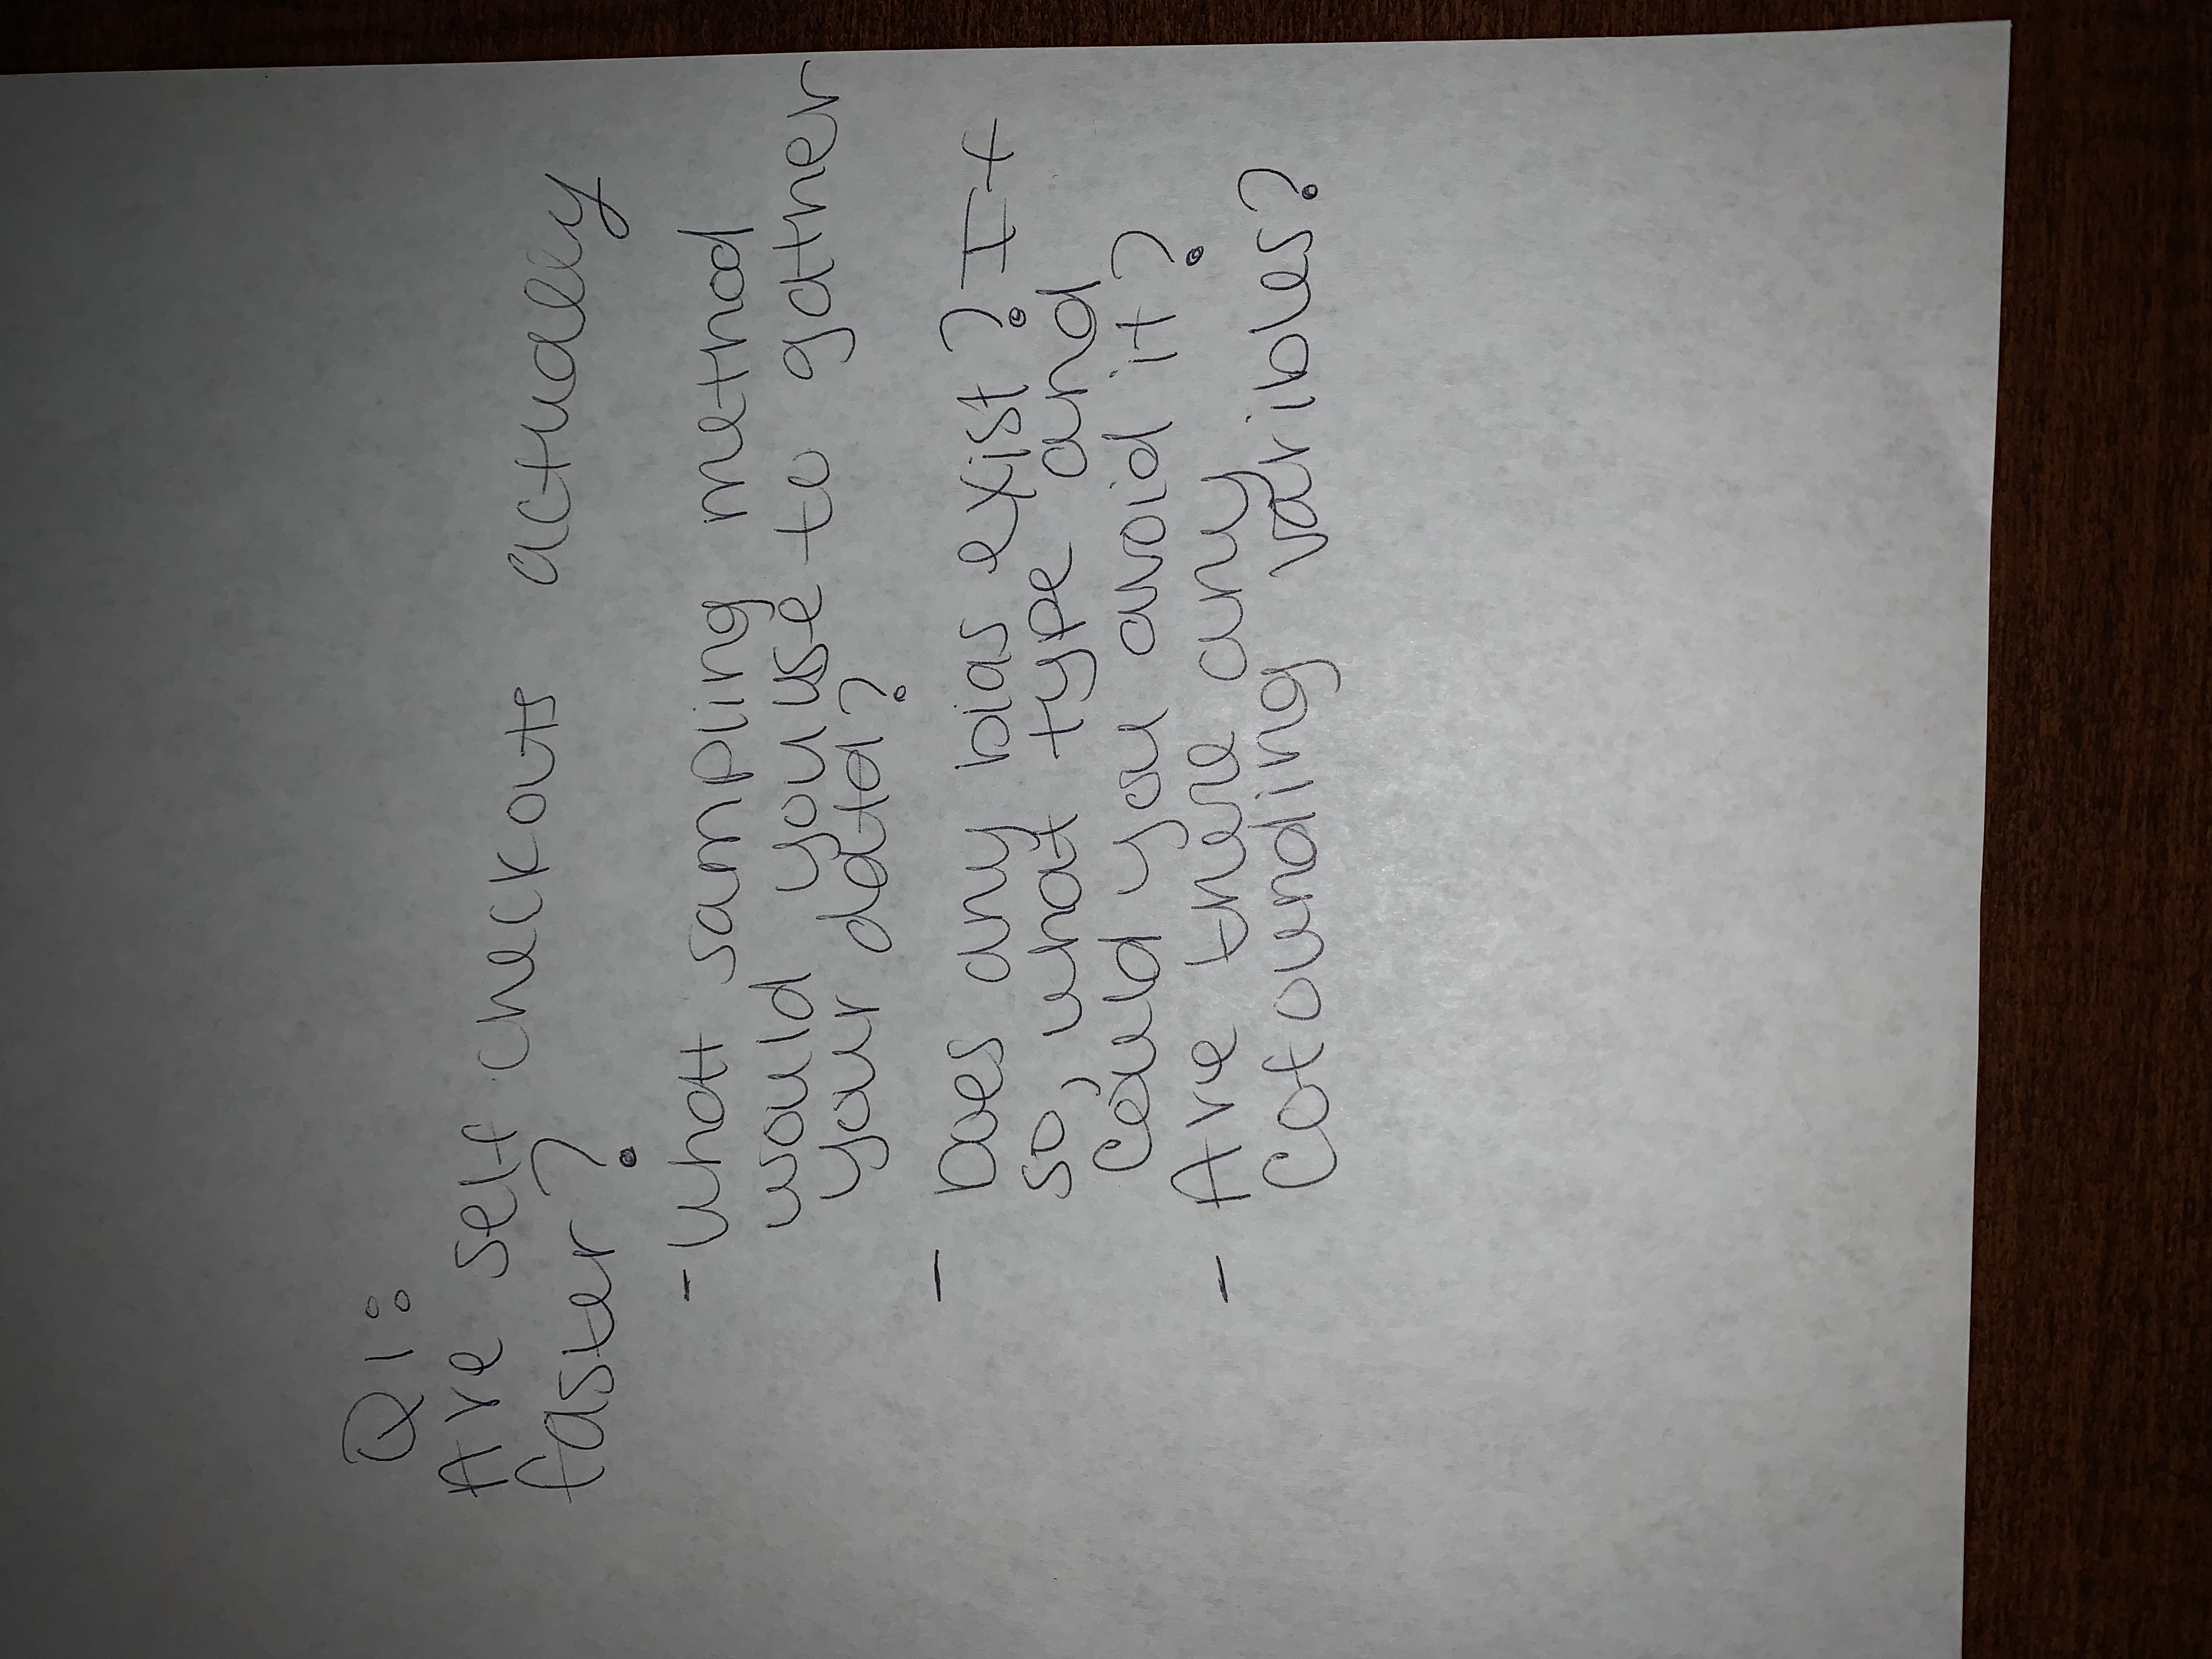 Q1:
Are self checkouts actually
faster?
- What sampling method
would you use to gather
your data?
- Does any bias exist? If
so, what type and
could you avoid it?
- Are there any
cofounding varibles?